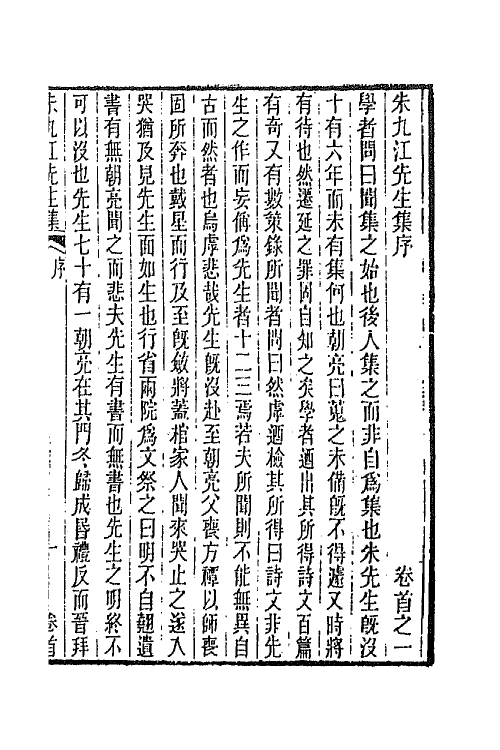 朱九江先生集序 卷首之一
學者問曰聞集之始也後人集之而非自爲集也朱先生旣沒
十有六年而未有集何也朝亮曰蒐之未備旣不得遽又時將
有待也然遷延之罪固自知之矣學者迺出其所得詩文百篇
有奇又有數策錄所聞者問曰然虖迺檢其所得曰詩文非先
生之作而妄稱爲先生者十二三焉若夫所聞則不能無異自
古而然者也烏虖悲哉先生旣沒赴至朝亮父喪方禫以師喪
固所奔也戴星而行及至旣斂將蓋棺家人聞來哭止之遂入
哭猶及見先生面如生也行省兩院爲文祭之曰明不自翹遺
書有無朝亮聞之而悲夫先生有書而無書也先生之明終不
可以沒也先生七十有一朝亮在其門冬歸成昏禮反而晉拜
朱九江先生集 序 一 卷首